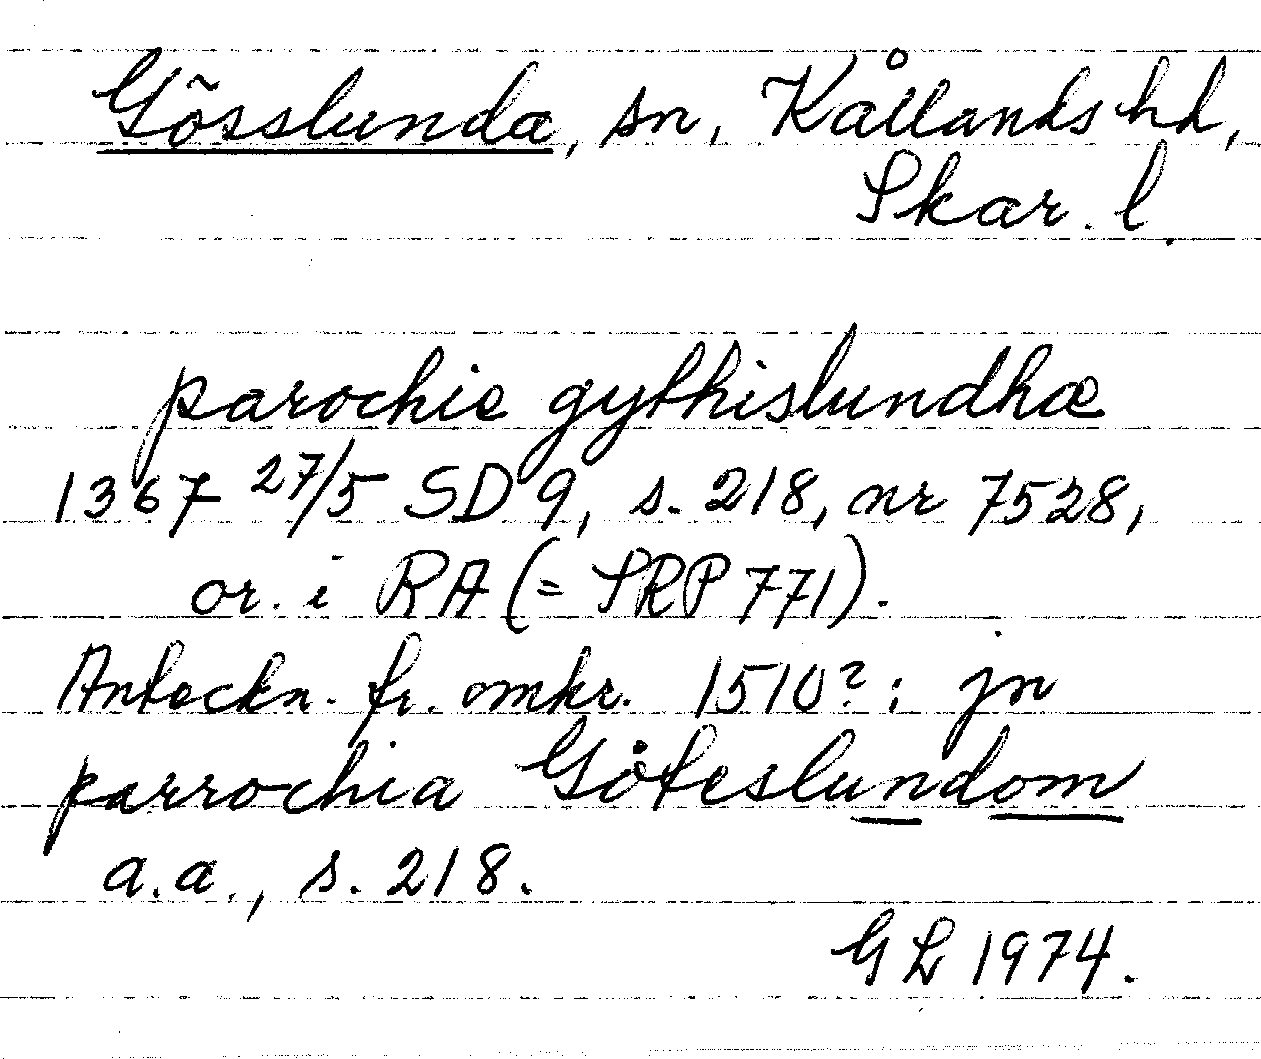 Gösslunda, sn, Kållands hd,
Skar. l.
parochie gythislundhæ
1367 27/5 SD 9, s. 218, nr 7528,
or. i RA (= SRP 771).
Anteckn. fr. omkr. 1510? : jn
parrochia Göteslundom
a.a., s. 218.
GL 1974.